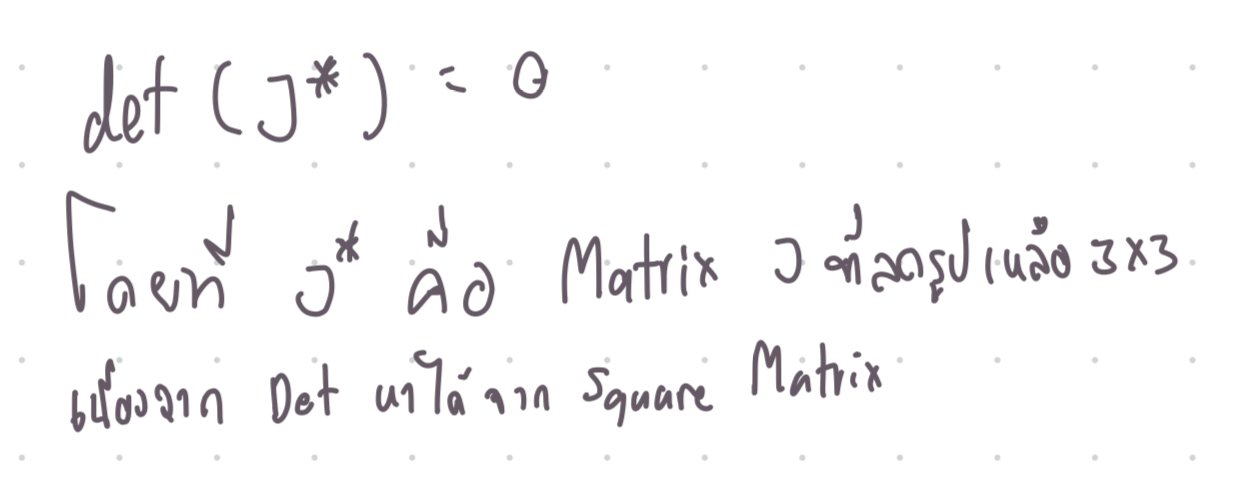 det (J*) = 0
โดยที่ J* คือ Matrix J ที่ลดรูปเหลือ 3×3
เนื่องจาก Det หาได้จาก Square Matrix